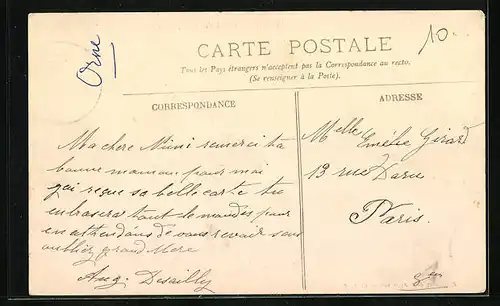 Orne
10.
CARTE POSTALE
Tous les Pays étrangers n'acceptent pas la Correspondance au recto.
(Se renseigner à la Poste).
CORRESPONDANCE
ADRESSE
Ma chere Mimi remerci ta
bonne maman pour moi
j'ai reçue sa belle carte tu
enbraseras tout le mondes pour
en attendans de vous revoir sans
oublier grand Mere
Aug. Desailly
Melle Emélie Girard
13 rue Daru
Paris.
8em